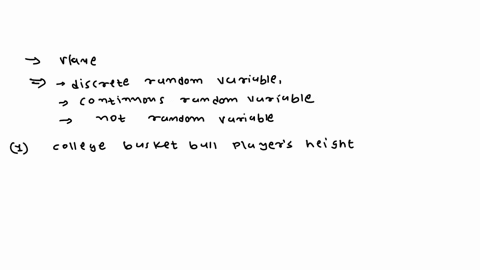 →
⇒ → discrete random variable,
→ continuous random variable
→ not random variable
(1) college basket ball player's height